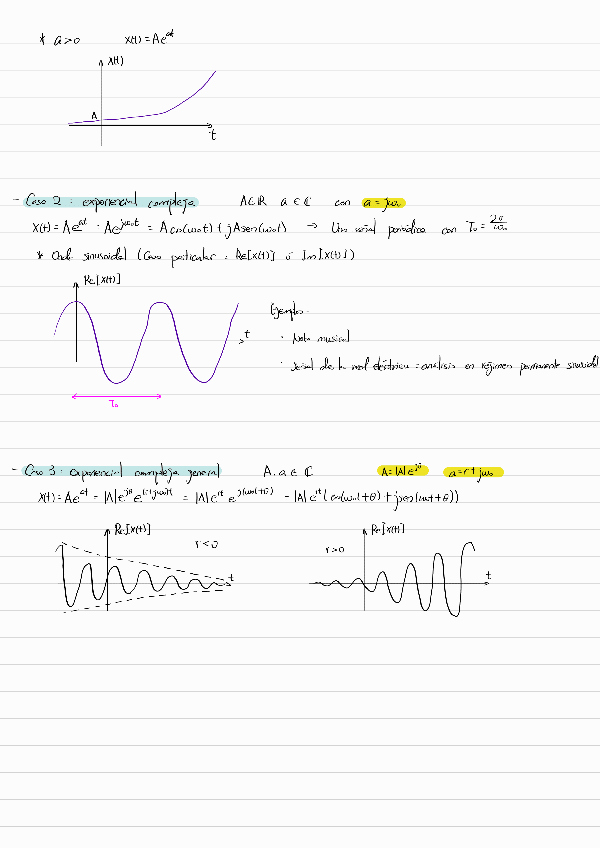 * a>0 x(t) = Ae^at
x(t)
A
t
- Caso 2: exponencial compleja A∈ℝ a∈ℂ con a=jω₀
x(t) = Ae^at = Ae^jω₀t = A cos(ω₀t) + jA sen(ω₀t) → Una señal periódica con T₀ = 2π/ω₀
* Onda sinusoidal (Caso particular: Re[x(t)] ó Im[x(t)])
Re[x(t)]
t
T₀
Ejemplo:
· Nota musical
· señal de la red eléctrica: análisis en régimen permanente sinusoidal
- Caso 3: exponencial compleja general A, a ∈ ℂ A=|A|e^jθ a=r+jω₀
x(t) = Ae^at = |A|e^jθ e^(r+jω₀)t = |A|e^rt e^j(ω₀t+θ) = |A|e^rt (cos(ω₀t+θ) + jsen(ω₀t+θ))
Re[x(t)]
r<0
t
Re[x(t)]
r>0
t